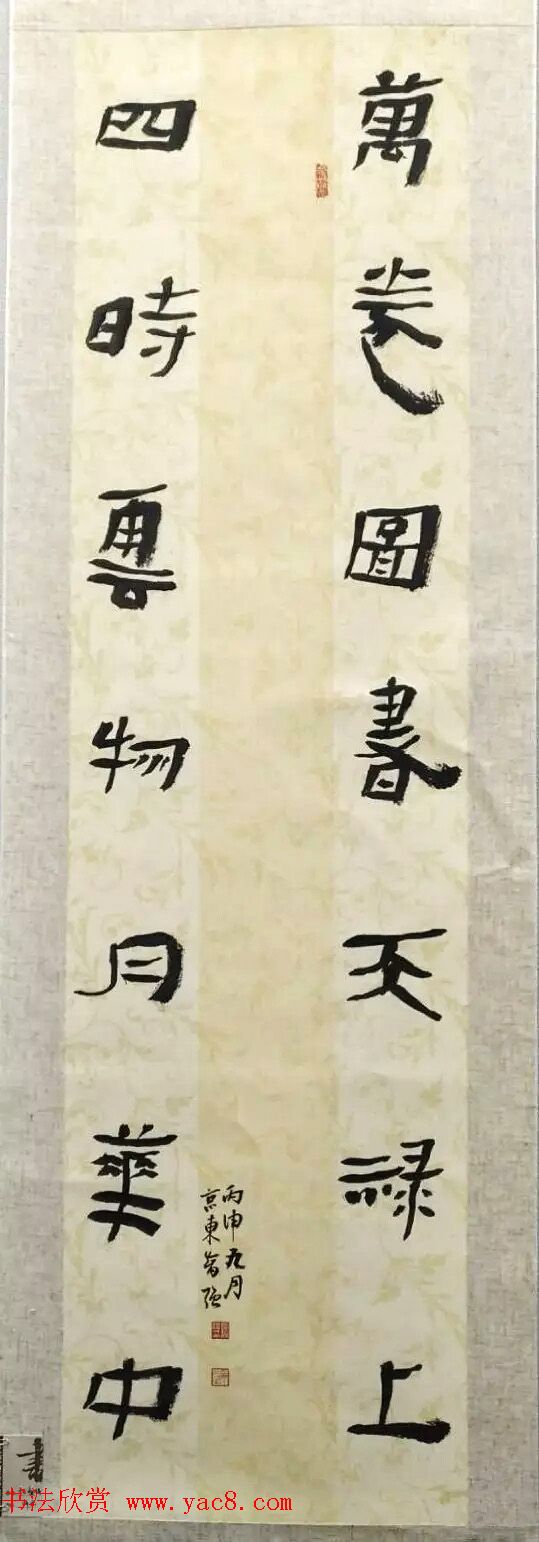 萬卷圖書天祿上
四時雲物月華中
丙申九月
京東
书法欣赏 www.yac8.com